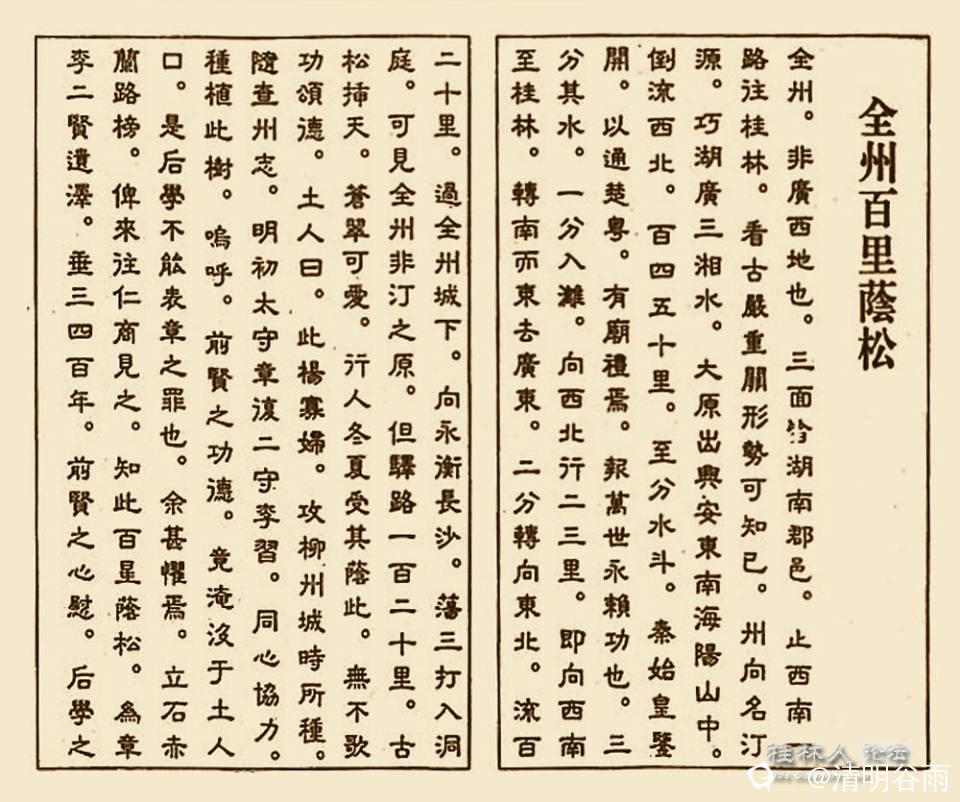 全州百里蔭松
全州。非廣西地也。三面皆湖南郡邑。止西南一
路往桂林。看古嚴重關形勢可知已。州向名汀
源。巧湖廣三湘水。大原出興安東南海陽山中。
倒流西北。百四五十里。至分水斗。秦始皇鑒
開。以通楚粤。有廟禮焉。報萬世永賴功也。三
分其水。一分入灕。向西北行二三里。即向西南
至桂林。轉南而東去廣東。二分轉向東北。流百
二十里。過全州城下。向永衡長沙。蕩三打入洞
庭。可見全州非汀之原。但驛路一百二十里。古
松揷天。蒼翠可愛。行人冬夏受其蔭此。無不歌
功頌德。土人曰。此楊寡婦。攻柳州城時所種。
隨查州志。明初太守章復二守李習。同心協力。
種植此樹。嗚呼。前賢之功德。竟淹沒于土人
口。是后學不能表章之罪也。余甚懼焉。立石赤
蘭路榜。俾來往仁商見之。知此百星蔭松。為章
李二賢遺澤。垂三四百年。前賢之心慰。后學之
桂林人 论坛
@清明谷雨